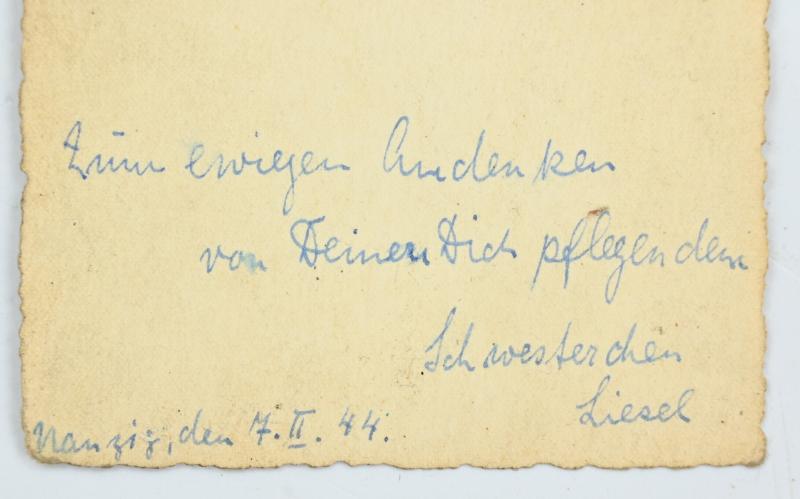 Zum ewigen Andenken
von Deinen Dich pflegendem
Schwesterchen
Liesel
Nanzig, den 7. II. 44.